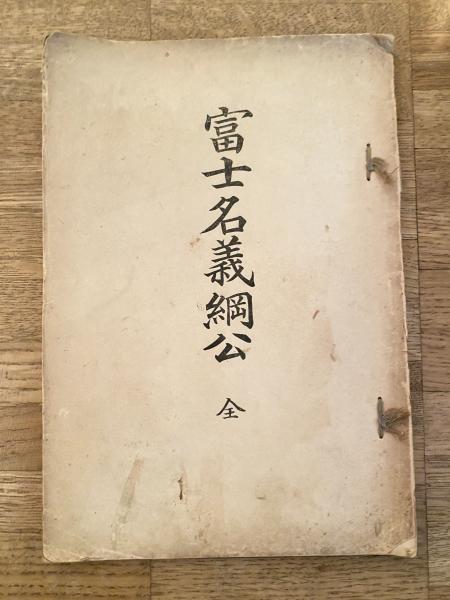 富士名義綱公
全